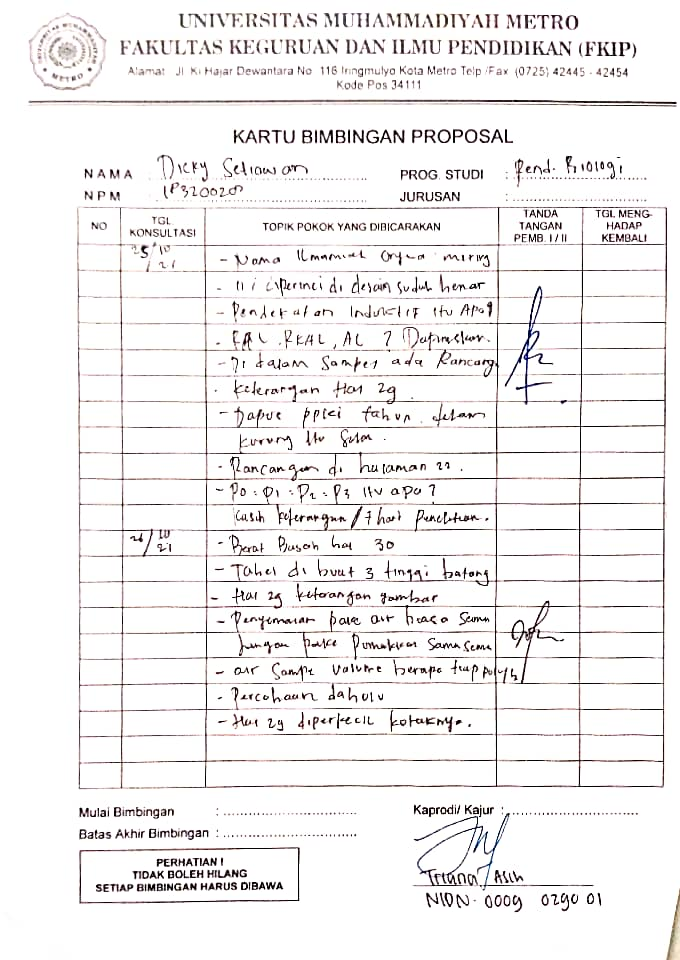 UNIVERSITAS MUHAMMADIYAH METRO
FAKULTAS KEGURUAN DAN ILMU PENDIDIKAN (FKIP)
Alamat Jl. Ki Hajar Dewantara No. 116 Iringmulyo Kota Metro Telp /Fax (0725) 42445 - 42454
Kode Pos 34111
UNIVERSITAS MUHAMMADIYAH METRO
KARTU BIMBINGAN PROPOSAL
NAMA : Dicky Setiawan
PROG. STUDI : Pend. Biologi
NPM :
JURUSAN :
NO
TGL KONSULTASI
TOPIK POKOK YANG DIBICARAKAN
TANDA TANGAN PEMB. I / II
TGL MENG-HADAP KEMBALI
25/10/21
- Nama Ilmamiah miring
- di desain sudul benar
- Pendekatan Induktif itu Apa?
- RAL, RKAL, AL ?
- Di dalam Sampel ada Rancang
- Keterangan Hal 29
- Dapus tahun dalam
kurung itu
- Rancangan di halaman 22.
- P0 = P1 = P2 = P3 itu apa?
kasih keterangan / 7 hari Penelitian.
26/10/21
- Berat Basah hal 30
- Tabel di buat 3 tinggi batang
- Hal 29 keterangan gambar
- Penyemaian pake air biasa Semua
Jangan pake Sama Sema
- air Sampe volume berapa tiap polyb
- Percobaan dahulu
- Hal 29 diperkecil kotaknya.
Mulai Bimbingan :
Kaprodi/ Kajur :
Batas Akhir Bimbingan :
PERHATIAN !
TIDAK BOLEH HILANG
SETIAP BIMBINGAN HARUS DIBAWA
Triana Asih
NIDN. 0009 0290 01